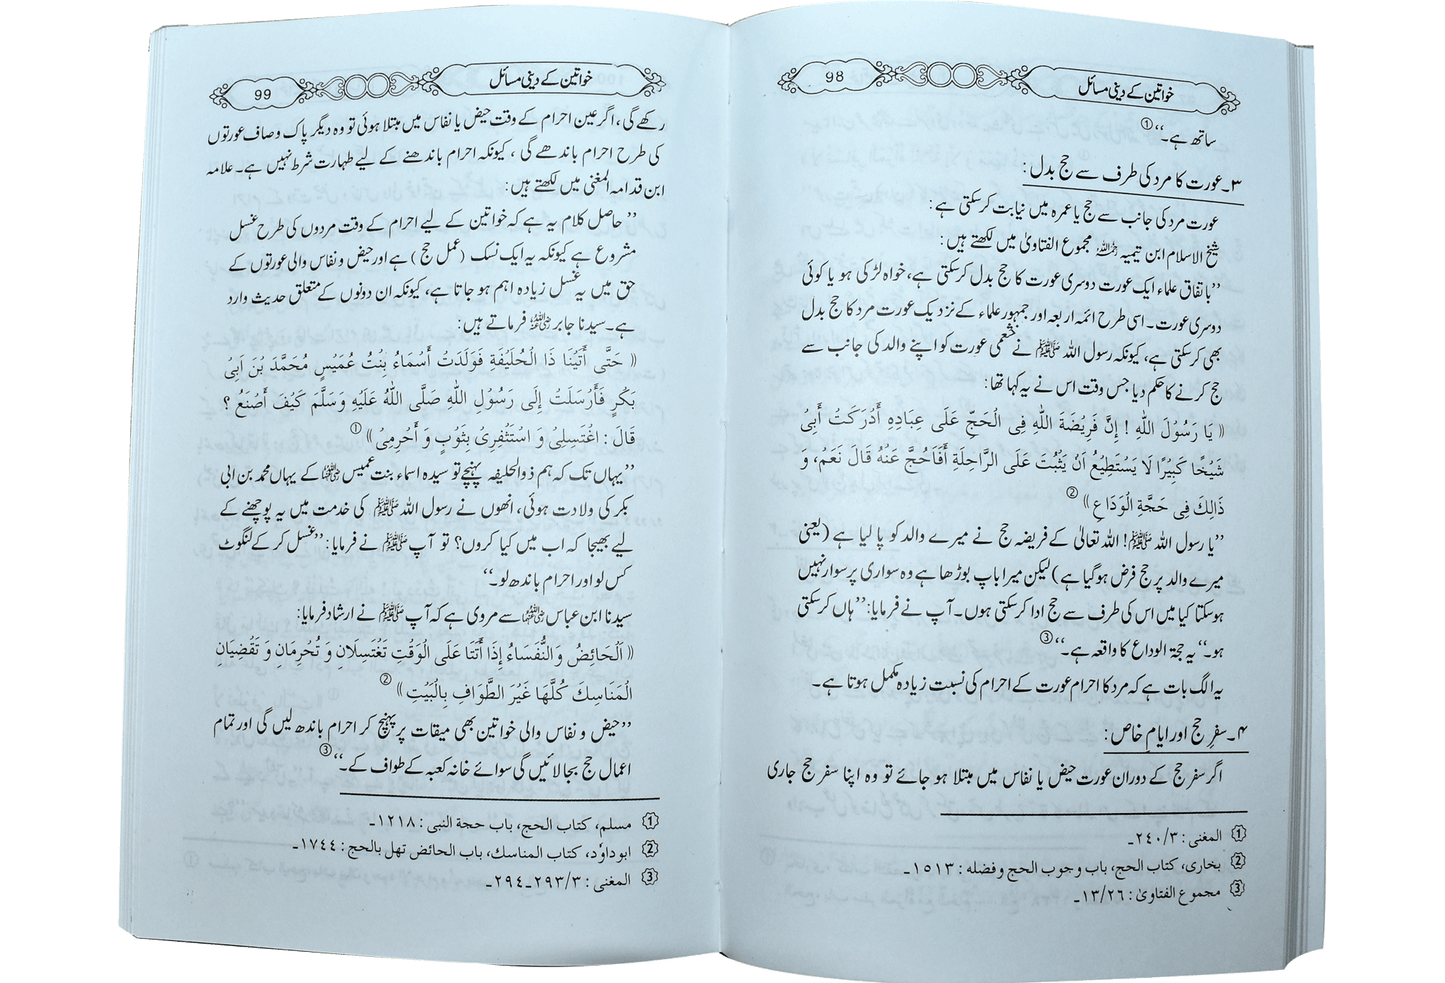 98 خواتین کے دینی مسائل
ساتھ ہے۔‘‘①
۳۔عورت کا مرد کی طرف سے حج بدل:
عورت مرد کی جانب سے حج یا عمرہ میں نیابت کر سکتی ہے:
شیخ الاسلام ابن تیمیہ رحمہ اللہ مجموع الفتاویٰ میں لکھتے ہیں:
’’باتفاق علماء ایک عورت دوسری عورت کا حج بدل کر سکتی ہے، خواہ لڑکی ہو یا کوئی
دوسری عورت۔ اسی طرح ائمہ اربعہ اور جمہور علماء کے نزدیک عورت مرد کا حج بدل
بھی کر سکتی ہے، کیونکہ رسول اللہ ﷺ نے خثعمی عورت کو اپنے والد کی جانب سے
حج کرنے کا حکم دیا جس وقت اس نے یہ کہا تھا:
(( یَا رَسُوۡلَ اللّٰہِ ! إِنَّ فَرِیۡضَۃَ اللّٰہِ فِی الۡحَجِّ عَلَی عِبَادِہِ أَدۡرَکَتۡ أَبِیۡ
شَیۡخًا کَبِیۡرًا لَا یَسۡتَطِیۡعُ اَنۡ یَثۡبُتَ عَلَی الرَّاحِلَۃِ أَفَاَحُجُّ عَنۡہُ قَالَ نَعَمۡ، وَ
ذَالِکَ فِی حَجَّۃِ الۡوَدَاعِ )) ②
’’یا رسول اللہ ﷺ! اللہ تعالیٰ کے فریضہ حج نے میرے والد کو پا لیا ہے (یعنی
میرے والد پر حج فرض ہو گیا ہے) لیکن میرا باپ بوڑھا ہے وہ سواری پر سوار نہیں
ہو سکتا کیا میں اس کی طرف سے حج ادا کر سکتی ہوں۔ آپ نے فرمایا: ’’ہاں کر سکتی
ہو۔‘‘ یہ حجۃ الوداع کا واقعہ ہے۔‘‘③
یہ الگ بات ہے کہ مرد کا احرام عورت کے احرام کی نسبت زیادہ مکمل ہوتا ہے۔
۴۔سفر حج اور ایام خاص:
اگر سفر حج کے دوران عورت حیض یا نفاس میں مبتلا ہو جائے تو وہ اپنا سفر حج جاری
① المغنی : ۳/ ۲۴۰۔
② بخاری، کتاب الحج، باب وجوب الحج وفضلہ : ۱۵۱۳۔
③ مجموع الفتاویٰ : ۲۶/ ۱۳۔
99 خواتین کے دینی مسائل
رکھے گی، اگر عین احرام کے وقت حیض یا نفاس میں مبتلا ہوئی تو وہ دیگر پاک و صاف عورتوں
کی طرح احرام باندھے گی ، کیونکہ احرام باندھنے کے لیے طہارت شرط نہیں ہے۔ علامہ
ابن قدامہ المغنی میں لکھتے ہیں:
’’ حاصل کلام یہ ہے کہ خواتین کے لیے احرام کے وقت مردوں کی طرح غسل
مشروع ہے کیونکہ یہ ایک نسک (عمل حج ) ہے اور حیض و نفاس والی عورتوں کے
حق میں یہ غسل زیادہ اہم ہو جاتا ہے، کیونکہ ان دونوں کے متعلق حدیث وارد
ہے۔ سیدنا جابر رضی اللہ عنہ فرماتے ہیں:
(( حَتَّی أَتَیۡنَا ذَا الۡحُلَیۡفَۃِ فَوَلَدَتۡ أَسۡمَاءُ بِنۡتُ عُمَیۡسٍ مُحَمَّدَ بۡنَ اَبِیۡ
بَکۡرٍ فَأَرۡسَلَتۡ إِلَی رَسُوۡلِ اللّٰہِ صَلَّی اللّٰہُ عَلَیۡہِ وَسَلَّمَ کَیۡفَ أَصۡنَعُ ؟
قَالَ : اغۡتَسِلِیۡ وَ اسۡتَثۡفِرِیۡ بِثَوۡبٍ وَ أَحۡرِمِیۡ)) ①
’’یہاں تک کہ ہم ذوالحلیفہ پہنچے تو سیدہ اسماء بنت عمیس رضی اللہ عنہا کے یہاں محمد بن ابی
بکر کی ولادت ہوئی، انھوں نے رسول اللہ ﷺ کی خدمت میں یہ پوچھنے کے
لیے بھیجا کہ اب میں کیا کروں؟ تو آپ ﷺ نے فرمایا: ’’غسل کر کے لنگوٹ
کس لو اور احرام باندھ لو۔‘‘
سیدنا ابن عباس رضی اللہ عنہما سے مروی ہے کہ آپ ﷺ نے ارشاد فرمایا:
(( اَلۡحَائِضُ وَالنُّفَسَاءُ إِذَا أَتَتَا عَلَی الۡوَقۡتِ تَغۡتَسِلَانِ وَ تُحۡرِمَانِ وَ تَقۡضِیَانِ
الۡمَنَاسِکَ کُلَّہَا غَیۡرَ الطَّوَافِ بِالۡبَیۡتِ )) ②
’’حیض و نفاس والی خواتین بھی میقات پر پہنچ کر احرام باندھ لیں گی اور تمام
اعمال حج بجا لائیں گی سوائے خانہ کعبہ کے طواف کے۔‘‘③
① مسلم، کتاب الحج، باب حجۃ النبی : ۱۲۱۸۔
② ابوداوٗد، کتاب المناسک، باب الحائض تہل بالحج : ۱۷۴۴۔
③ المغنی : ۳/ ۲۹۳۔۲۹۴۔